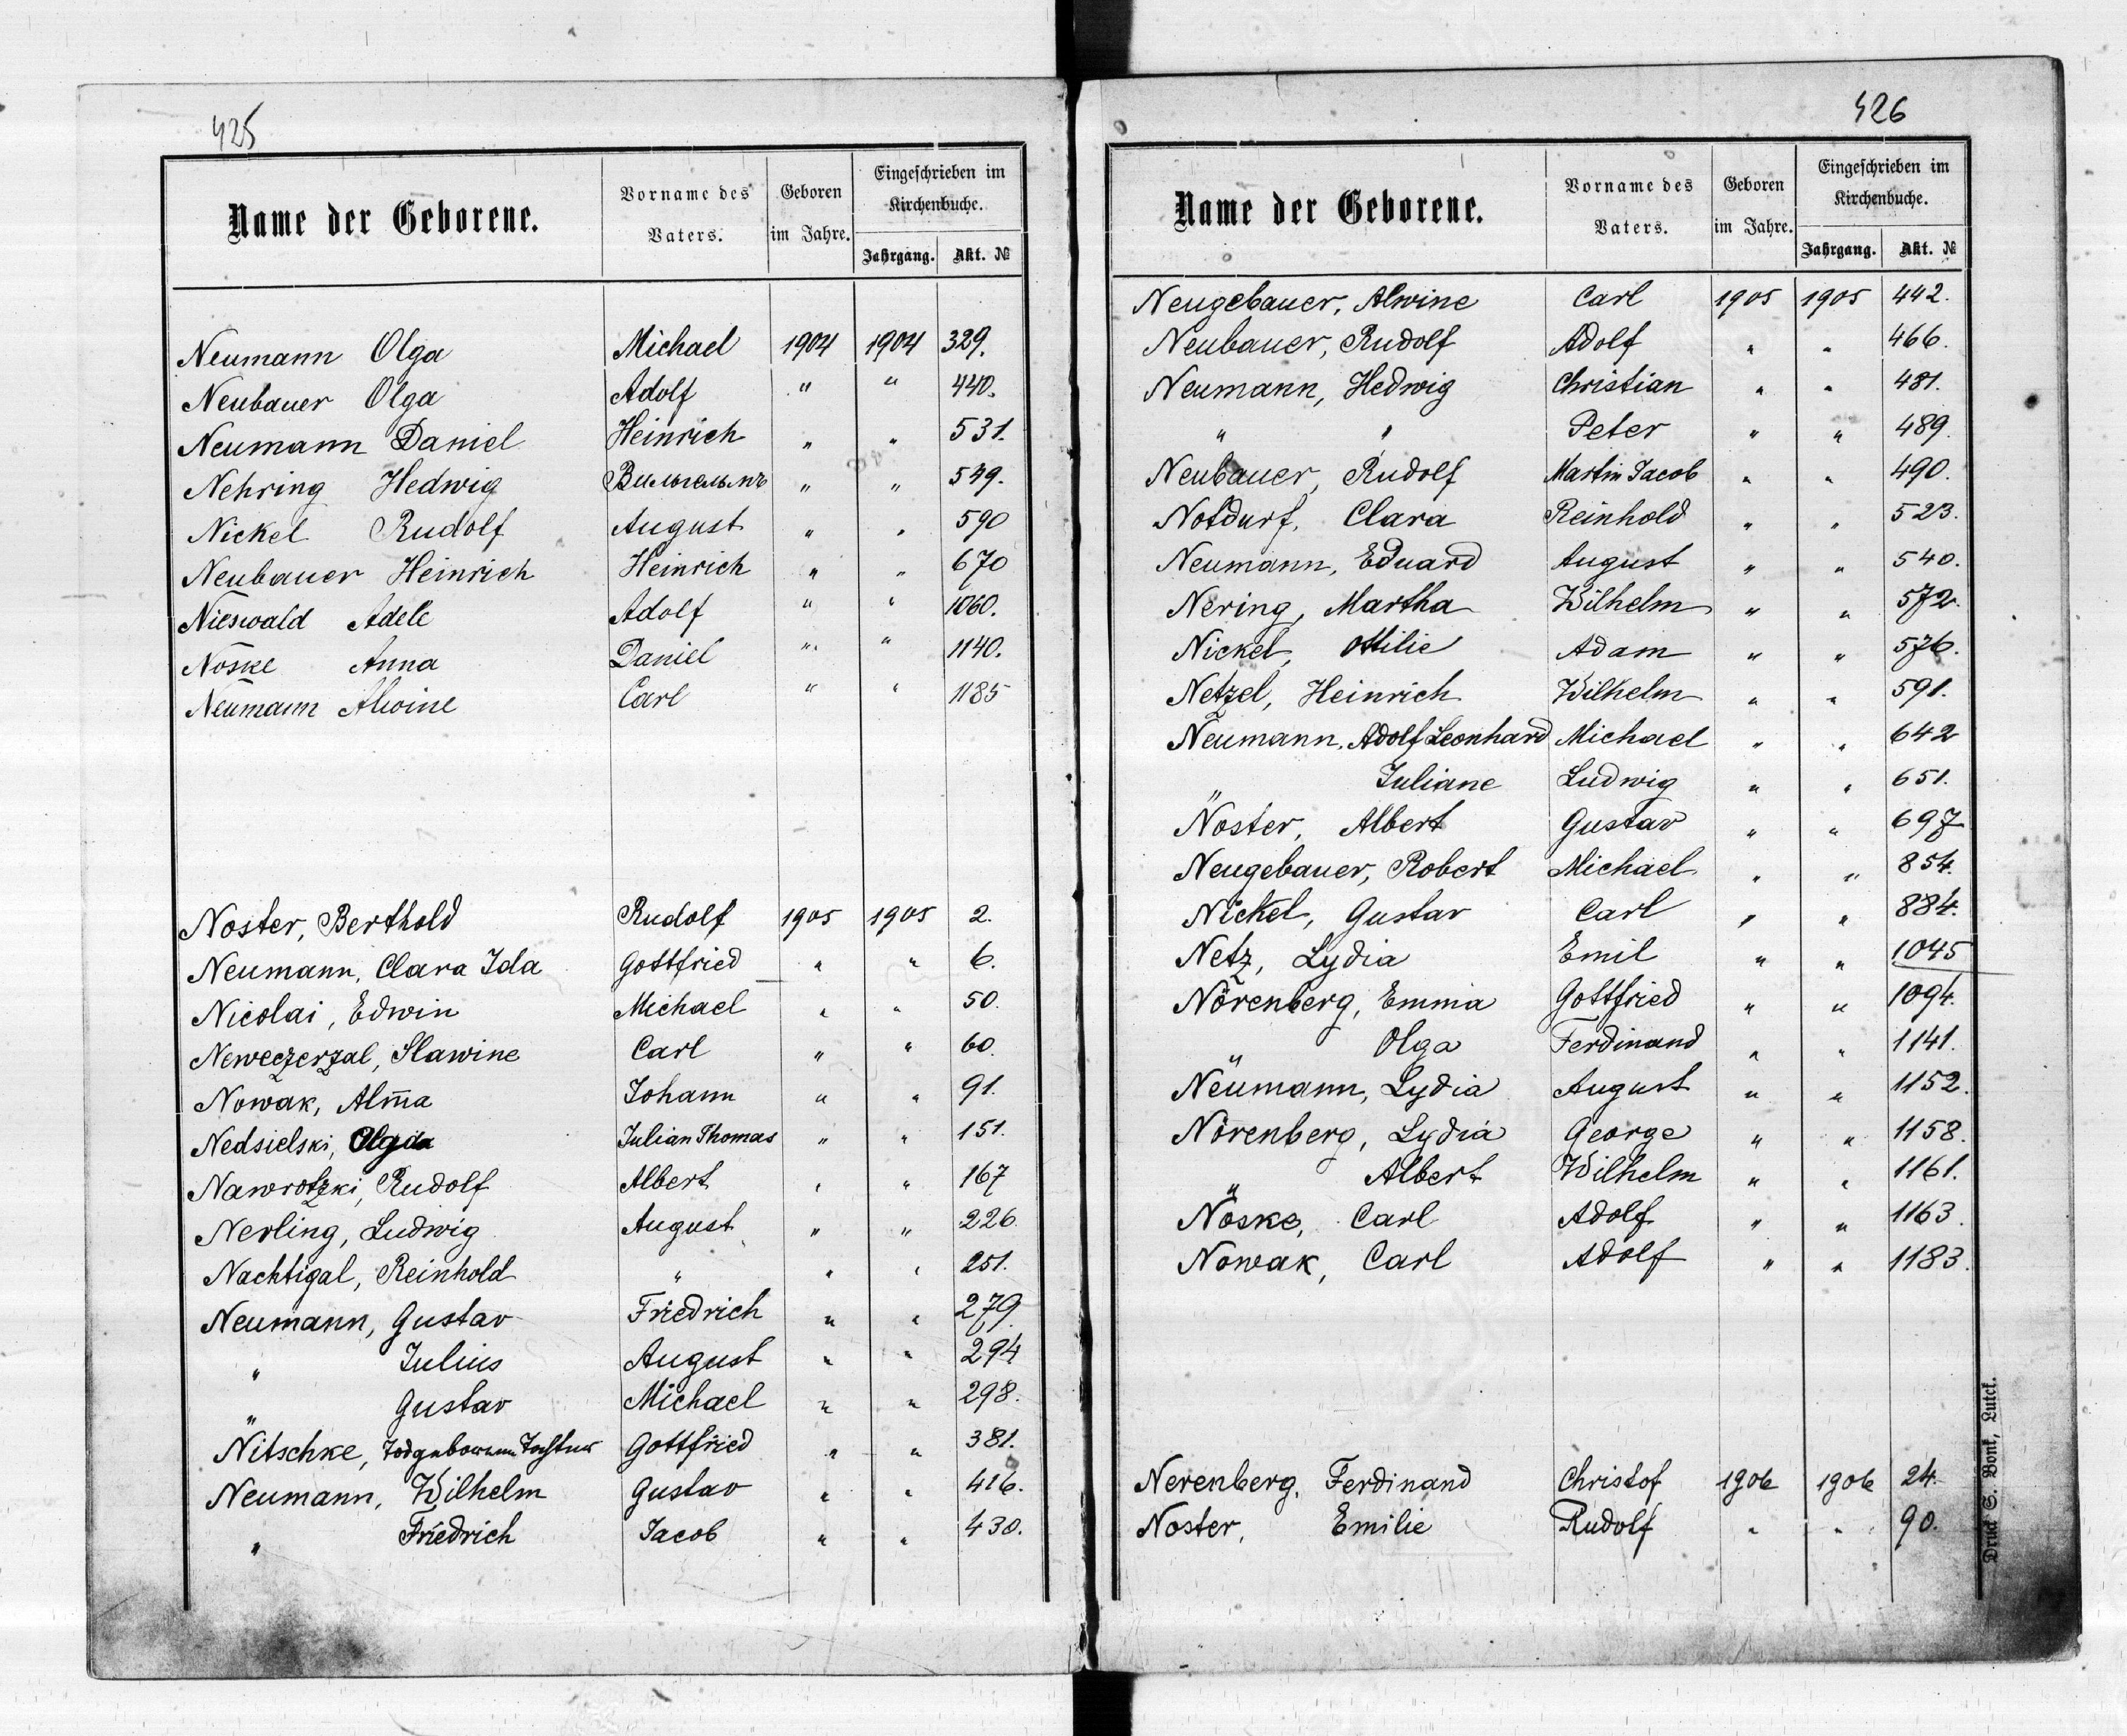 425
Name der Geborene. Vorname des Vaters. Geboren im Jahre. Eingeschrieben im Kirchenbuche. Jahrgang. Akt. №
Neumann Olga Michael 1904 1904 329.
Neubauer Olga Adolf " " 440.
Neumann Daniel Heinrich " " 531.
Nehring Hedwig Вильгельмъ " " 549.
Nickel Rudolf August " " 590
Neubauer Heinrich Heinrich " " 670
Nieswald Adele Adolf " " 1060.
Noske Anna Daniel " " 1140.
Neumann Alwine Carl " " 1185
Noster, Berthold Rudolf 1905 1905 2.
Neumann, Clara Ida Gottfried " " 6.
Nicolai, Edwin Michael " " 50.
Neweczerzal, Slawine Carl " " 60.
Nowak, Alm̄a Johann " " 91.
Nedsielski, Julian Thomas " " 151.
Nawrotzki, Rudolf Albert " " 167
Nerling, Ludwig August " " 226.
Nachtigal, Reinhold " " " 251.
Neumann, Gustav Friedrich " " 279.
" Julius August " " 294
" Gustav Michael " " 298.
Nitschke, Todgeborene Tochter Gottfried " " 381.
Neumann, Wilhelm Gustav " " 416.
" Friedrich Jacob " " 430.
426
Name der Geborene. Vorname des Vaters. Geboren im Jahre. Eingeschrieben im Kirchenbuche. Jahrgang. Akt. №
Neugebauer, Alwine Carl 1905 1905 442.
Neubauer, Rudolf Adolf " " 466.
Neumann, Hedwig Christian " " 481.
" " Peter " " 489.
Neubauer, Rudolf Martin Jacob " " 490.
Notdurf, Clara Reinhold " " 523.
Neumann, Eduard August " " 540.
Nering, Martha Wilhelm " " 572.
Nickel, Ottilie Adam " " 576.
Netzel, Heinrich Wilhelm " " 591.
Neumann, Adolf Leonhard Michael " " 642
" Juliane Ludwig " " 651.
Noster, Albert Gustav " " 697
Neugebauer, Robert Michael " " 854.
Nickel, Gustav Carl " " 884.
Netz, Lydia Emil " " 1045
Nörenberg, Emma Gottfried " " 1094.
" Olga Ferdinand " " 1141.
Neumann, Lydia August " " 1152.
Nörenberg, Lydia George " " 1158.
" Albert Wilhelm " " 1161.
Noske, Carl Adolf " " 1163.
Nowak, Carl Adolf " " 1183.
Nerenberg, Ferdinand Christof 1906 1906 24.
Noster, Emilie Rudolf " " 90.
Druck S. Bonk, Lutck.